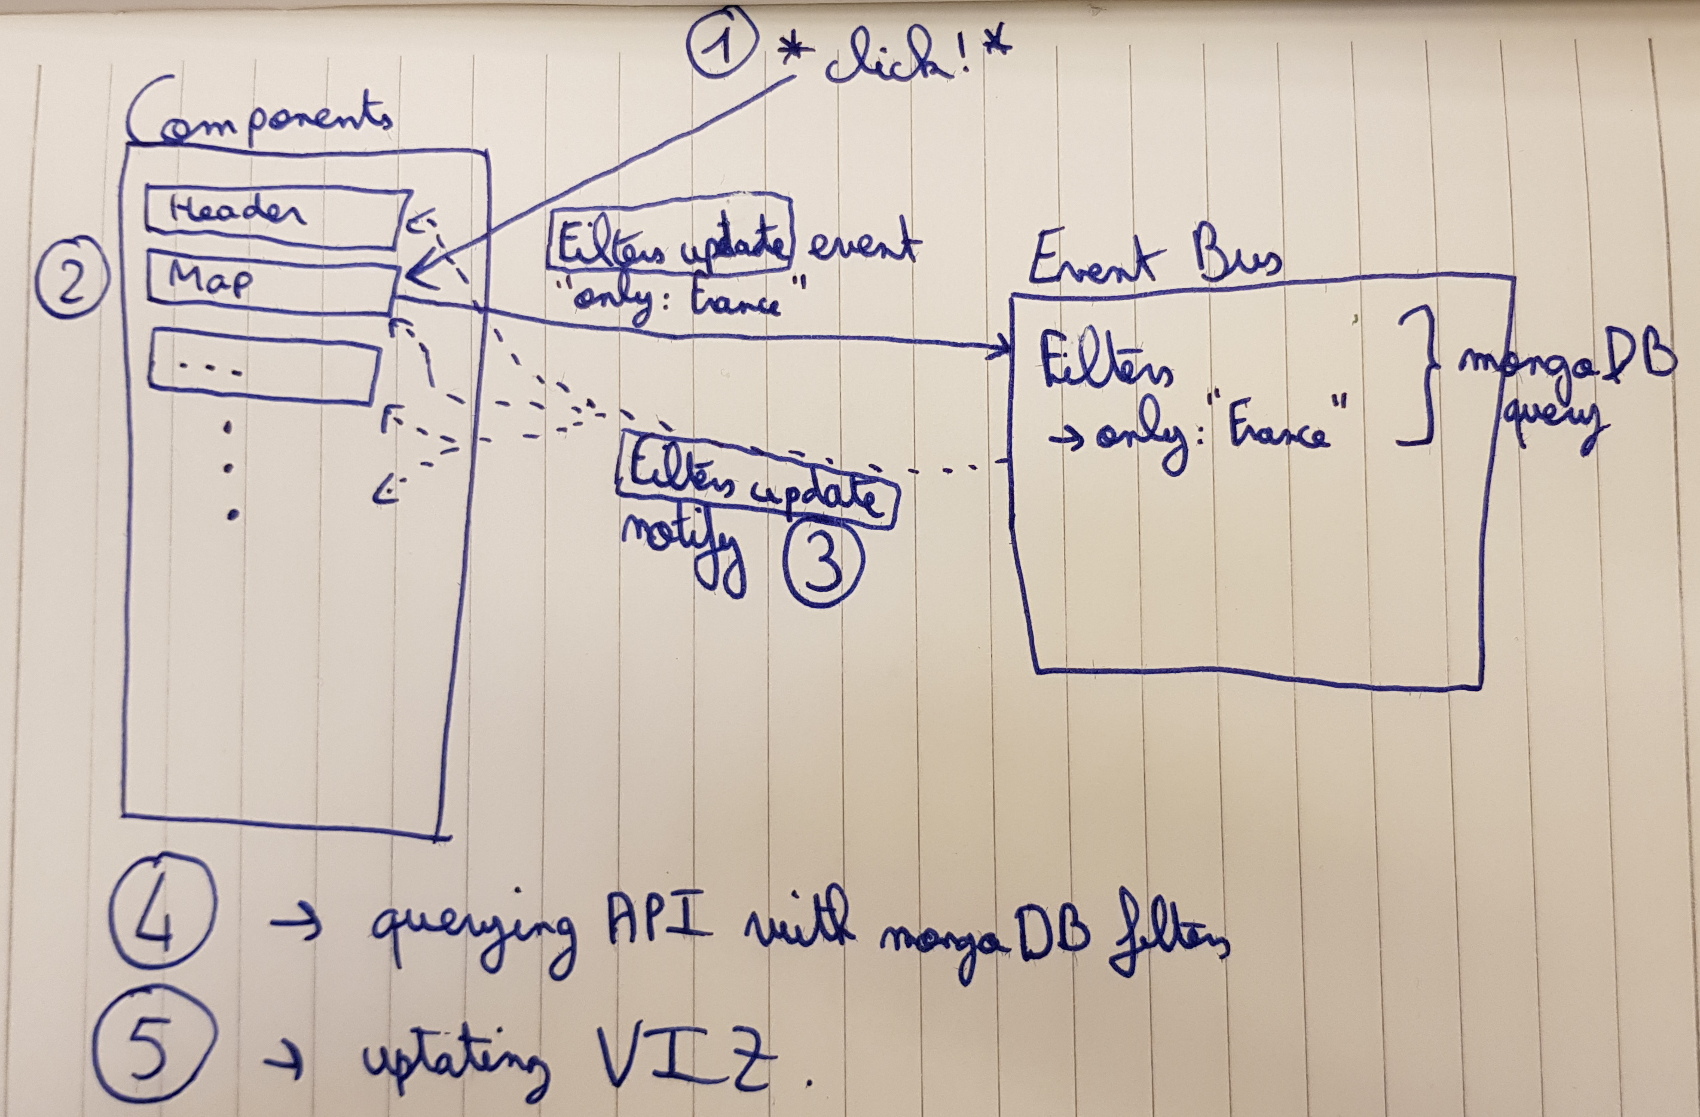 ① *click!*
Components
Header
Map
...
②
Filters update event
"only: France"
Event Bus
Filters
→ only: "France"
mongoDB
query
Filters update
notify ③
④ → querying API with mongoDB filters
⑤ → uptating VIZ.